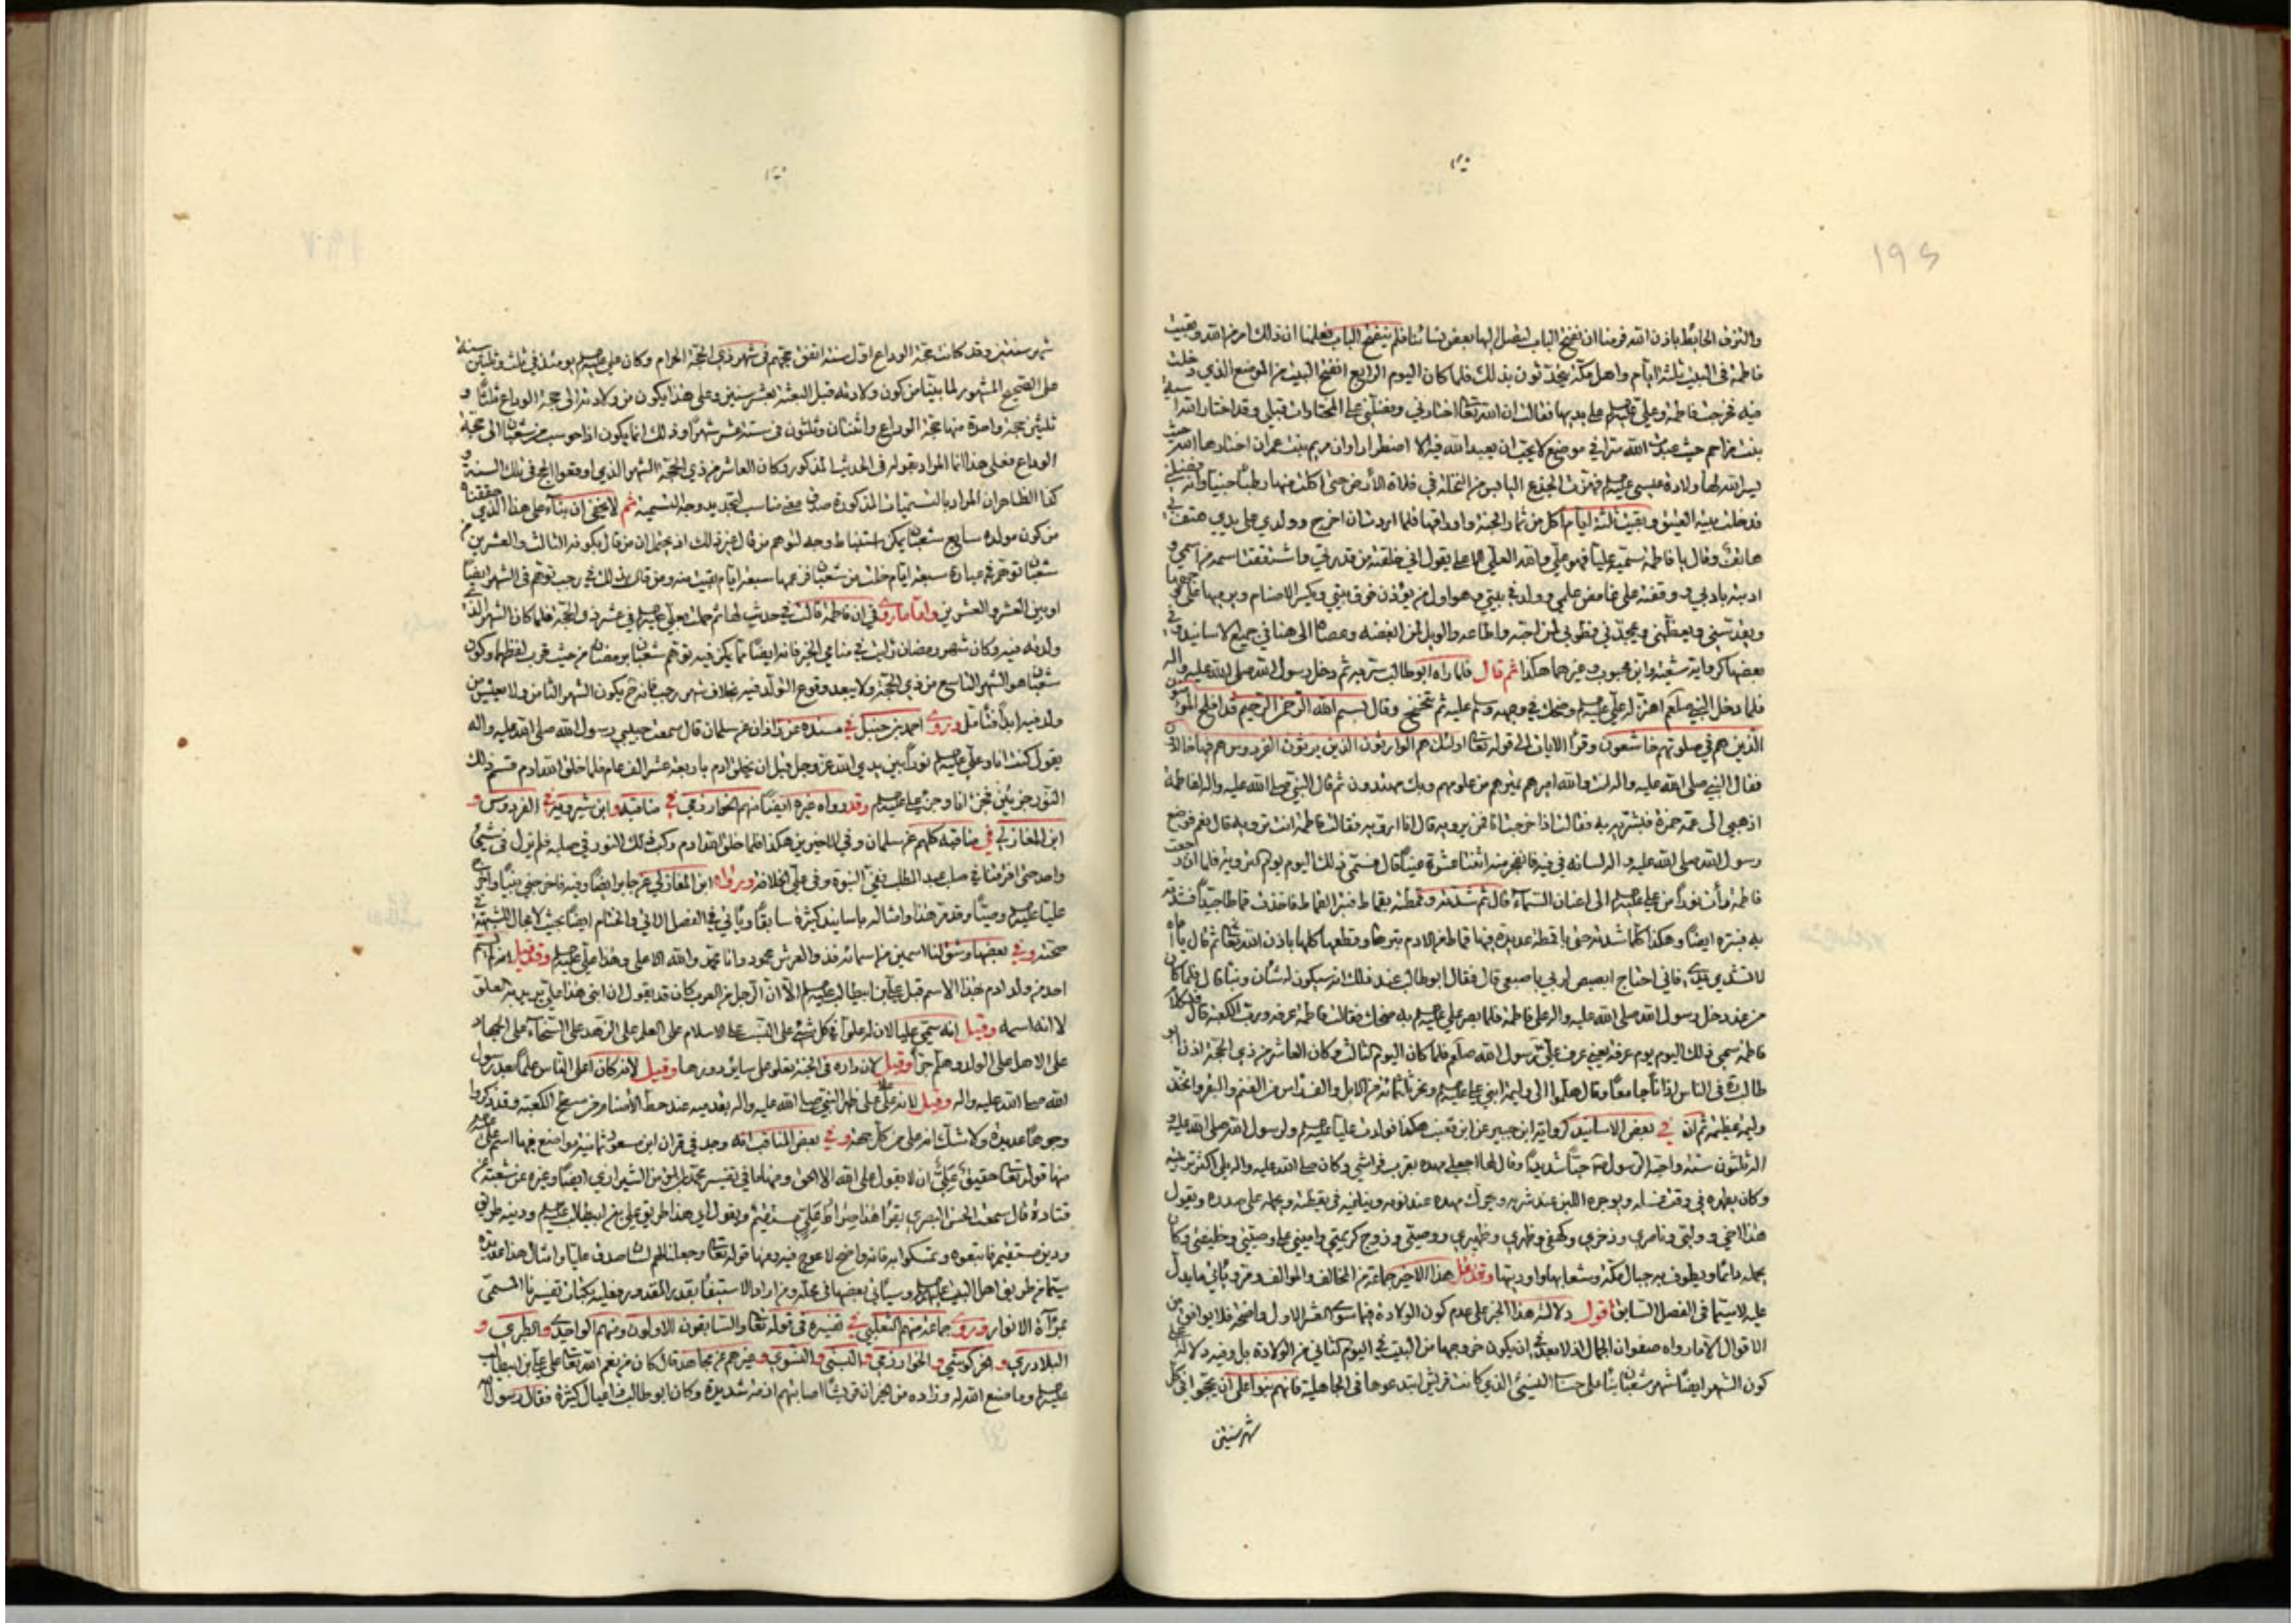 ١٩٤
والتزق الحائط باذن الله فرمنا ان نفتح الباب ليصل اليها بعض نسائنا فلم ينفتح الباب فعلمنا ان ذلك امر من الله وبقيت
فاطمة فى البيت ثلثة ايام واهل مكة يتحدثون بذلك فلما كان اليوم الرابع انفتح البيت من الموضع الذي دخلت
فيه فخرجت فاطمة وعلي على يديها فقالت ان الله تعالى اختارني وفضلني على المختارات قبلي وقد اختار الله اسية
بنت مزاحم حيث عبدت الله سرا في موضع لا يحب ان يعبد الله فيه الا اضطرارا وان مريم بنت عمران اختارها الله حيث
يسر الله لها ولادة عيسى فهزت الجذع اليابس من النخلة في فلاة الأرض حتى اكلت منها رطبا جنيا وانه فضلني
فدخلت بيته العتيق وبقيت ثلثة ايام آكل من ثمار الجنة واوراقها فلما اردت ان اخرج وولدي على يدي هتف بي
هاتف وقال يا فاطمة سميه عليا فهو علي والله العلي الاعلى يقول اني خلقته من قدرتي واشتققت اسمه من اسمي و
ادبته بادبي ووقفته على غامض علمي وولد في بيتي وهو اول من يؤذن فوق بيتي ويكسر الاصنام ويرميها على وجهها
ويقدسني ويعظمني ويمجدني فطوبى لمن احبه واطاعه والويل لمن ابغضه وعصاه الى هنا في جميع الاسانيد وفي
بعضها كرواية شعبة وابن محبوب وغيرهما هكذا ثم قال فلما راه ابوطالب سر به ثم دخل رسول الله صلى الله عليه واله
فلما دخل النبي صلعم اهتز له علي وضحك في وجهه وسلم عليه ثم تنحنح وقال بسم الله الرحمن الرحيم قد افلح المؤمنون
الذين هم في صلوتهم خاشعون وقرأ الايات الى قوله تعالى اولئك هم الوارثون الذين يرثون الفردوس هم فيها خالدون
فقال النبي صلى الله عليه واله انت والله اميرهم تميرهم من علومهم وبك يهتدون ثم قال النبي صلى الله عليه واله لفاطمة
اذهبي الى عمه حمزة فبشريه به فقالت اذا خرجت انا فمن يرويه قال انا ارويه فقالت فاطمة انت ترويه قال نعم فوضع
رسول الله صلى الله عليه واله لسانه في فيه فانفجر منه اثنتا عشرة عينا قال فسمي ذلك اليوم يوم التروية فلما ان رجعت
فاطمة رأت نورا من علي الى اعنان السماء قال ثم شدته وقمطته بقماط فبتر القماط فاخذت قماطا جيدا فشدته
به فبتره ايضا وهكذا كلما شدته حتى باقمطة عديدة فيها قماط من الادم بترها وقطعها كلها باذن الله تعالى ثم قال يا اماه
لا تشدي يدي فاني احتاج ابصبص لربي باصبعي قال فقال ابوطالب عند ذلك انه سيكون له شأن ونبأ قال فلما كان
من غد دخل رسول الله صلى الله عليه واله على فاطمة فلما بصر علي به ضحك فقالت فاطمة عرفه ورب الكعبة قال فلكلام
فاطمة سمي ذلك اليوم يوم عرفة يعني عرف علي رسول الله صلعم فلما كان اليوم الثالث وكان العاشر من ذي الحجة اذن ابو
طالب في الناس اذانا جامعا وقال هلموا الى وليمة ابني علي ونحر ثلثمائة من الابل والف راس من الغنم والبقر واتخذ
وليمة عظيمة ثم ان في بعض الاسانيد كرواية ابن جبير عن ابن قعنب هكذا فولدت عليا ولرسول الله صلى الله عليه و
اله ثلثون سنة واحبه الرسول حبا شديدا وقال لها اجعلي مهده بقرب فراشي وكان صلى الله عليه واله يلي اكثر تربيته
وكان يطهره في وقت غسله ويوجره اللبن عند شربه ويحرك مهده عند نومه ويناغيه في يقظته ويحمله على صدره ويقول
هذا اخي ووليي وناصري وذخري وكهفي وظهري وظهيري ووصيي وزوج كريمتي واميني على وصيتي وخليفتي وكان
يحمله دائما ويطوف به جبال مكة وشعابها واوديتها وقد نقل هذا الاخير جماعة من المخالف والموالف ومر ويأتي ما يدل
عليه لاسيما في الفصل السابق اقول دلالة هذا الخبر على عدم كون الولادة فيما سوى العشر الاول واضحة فلا يوافق من
الاقوال الا ما رواه صفوان الجمال اذ لا بعد في ان يكون خروجها من البيت في اليوم الثاني من الولادة بل وفيه دلالة على
كون الشهر ايضا شهر شعبان بناء على حساب النسيء الذي كانت قريش ابتدعوها في الجاهلية فانهم بنوا على ان يحجوا في كل
شهر سنتين
شهر سنتين وقد كانت حجة الوداع اول سنة اتفق حجهم في شهر ذي الحجة الحرام وكان علي يومئذ في ثلث وثلثين سنة
على الصحيح المشهور لما بيّنا من كون ولادته قبل البعثة بعشر سنين وعلى هذا يكون من ولادته الى حجة الوداع ثلثا و
ثلثين حجة واحدة منها حجة الوداع واثنتان وثلثون في ستة عشر شهرا وذلك انما يكون اذا حوسب من شعبان الى حجة
الوداع فعلى هذا انما المراد بقوله في الحديث المذكور وكان العاشر من ذي الحجة الشهر الذي اوقعوا الحج في تلك السنة و
كذا الظاهر ان المراد بالتسميات المذكورة صدق معنى مناسب لتجديد وجه التسمية ثم لا يخفى ان بناء على هذا الذي حققناه
من كون مولده سابع شعبان يمكن استنباط وجه لتوهم من قال غير ذلك اذ يحتمل ان من قال بكونه الثالث والعشرين من
شعبان توهم في عبارة سبعة ايام خلت من شعبان فزعمها سبعة ايام بقيت منه ومن قال بذلك في رجب توهم في الشهر ايضا
او بين العشر والعشرين واما ما روي في ان فاطمة قالت في حديث لها ثم حملت بعلي في عشر ذي الحجة فلما كان الشهر الذي
ولدته فيه وكان شهر رمضان رايت في منامي الخبر فانه ايضا مما يمكن فيه توهم شعبان برمضان من حيث قرب لفظهما وكون
شعبان هو الشهر التاسع من ذي الحجة ولا يبعد وقوع التولد فيه بخلاف شهر رجب فانه ح يكون الشهر الثامن ولا يعيش من
ولد فيه ابدا فتأمل وروى احمد بن حنبل في مسنده عن زاذان عن سلمان قال سمعت حبيبي رسول الله صلى الله عليه واله
يقول كنت انا وعلي نورا بين يدي الله عز وجل قبل ان يخلق ادم باربعة عشر الف عام فلما خلق الله ادم قسم ذلك
النور جزئين فجزء انا وجزء علي وقد رواه غيره ايضا منهم الخوارزمي في مناقبه وابن شيرويه في الفردوس و
ابن المغازلي في مناقبه كلهم عن سلمان وفي الاخيرين هكذا فلما خلق الله ادم ركب ذلك النور في صلبه فلم يزل في شيء
واحد حتى افترقنا في صلب عبد المطلب ففيّ النبوة وفي علي الخلافة ورواه ابن المغازلي عن جابر ايضا وفيه فاخرجني نبيا واخرج
عليا وصيا وقد مر هذا وامثاله باسانيد كثيرة سابقا ويأتي في الفصل الاتي والختام ايضا بحيث لا مجال للشبهة في
صحته وفي بعضها وشق لنا اسمين من اسمائه فذو العرش محمود وانا محمد والله الاعلى وهذا علي وقد قيل انه لم يسم
احد من ولد ادم بهذا الاسم قبل علي بن ابيطالب الا ان الرجل من العرب كان قد يقول ان ابني هذا علي يريد به العلو
لا انه اسمه وقيل انه سمي عليا لانه له علوا في كل شيء على النسب على الاسلام على العلم على الزهد على السخاء على الجهاد
على الاهل على الولد وهلم جرا وقيل لان داره في الجنة تعلو على سائر دورها وقيل لانه كان اعلى الناس علما بعد رسول
الله صلى الله عليه واله وقيل لانه علا على ظهر النبي صلى الله عليه واله بقدميه عند حط الأصنام من سطح الكعبة وقد ذكروا
وجوها عديدة ولا شك انه على من كل جهة وفي بعض المناقب انه وجد في قران ابن مسعود ثمانية مواضع فيها اسم علي
منها قوله تعالى حقيق عَلِيٌّ ان لا يقول على الله الا الحق ومنها ما في تفسير محمد بن مؤمن الشيرازي ايضا وغيره عن شعبة عن
قتادة قال سمعت الحسن البصري يقرأ هذا صراط علي مستقيم ويقول اي هذا طريق علي بن ابيطالب ودينه طريق
ودين مستقيم فاتبعوه وتمسكوا به فانه واضح لا عوج فيه ومنها قوله تعالى وجعلنا لهم لسان صدق عليا وامثال هذا عديدة
سيما من طريق اهل البيت وسيأتي بعضها في محله ومن اراد الاستيفاء بقدر المقدور فعليه بكتاب تفسيرنا المسمى
بمرآة الانوار وروى جماعة منهم الثعلبي في تفسيره في قوله تعالى والسابقون الاولون ومنهم الواحدي والطبري و
البلاذري والخركوشي والخوارزمي والنسفي والنسوي وغيرهم عن مجاهد قال كان من نعم الله تعالى على علي بن ابيطالب
وما صنع الله له وزاده من الخير ان قريشا اصابتهم ازمة شديدة وكان ابوطالب ذا عيال كثيرة فقال رسول الله